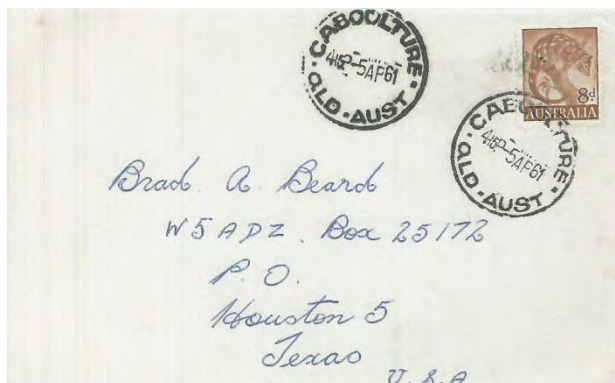 CABOOLTURE
415P-5AP61
QLD-AUST
8d
AUSTRALIA
CABOOLTURE
415P-5AP61
QLD-AUST
Brad. A Beard
W5ADZ. Box 25172
P.O.
Houston 5
Texas
U.S.A